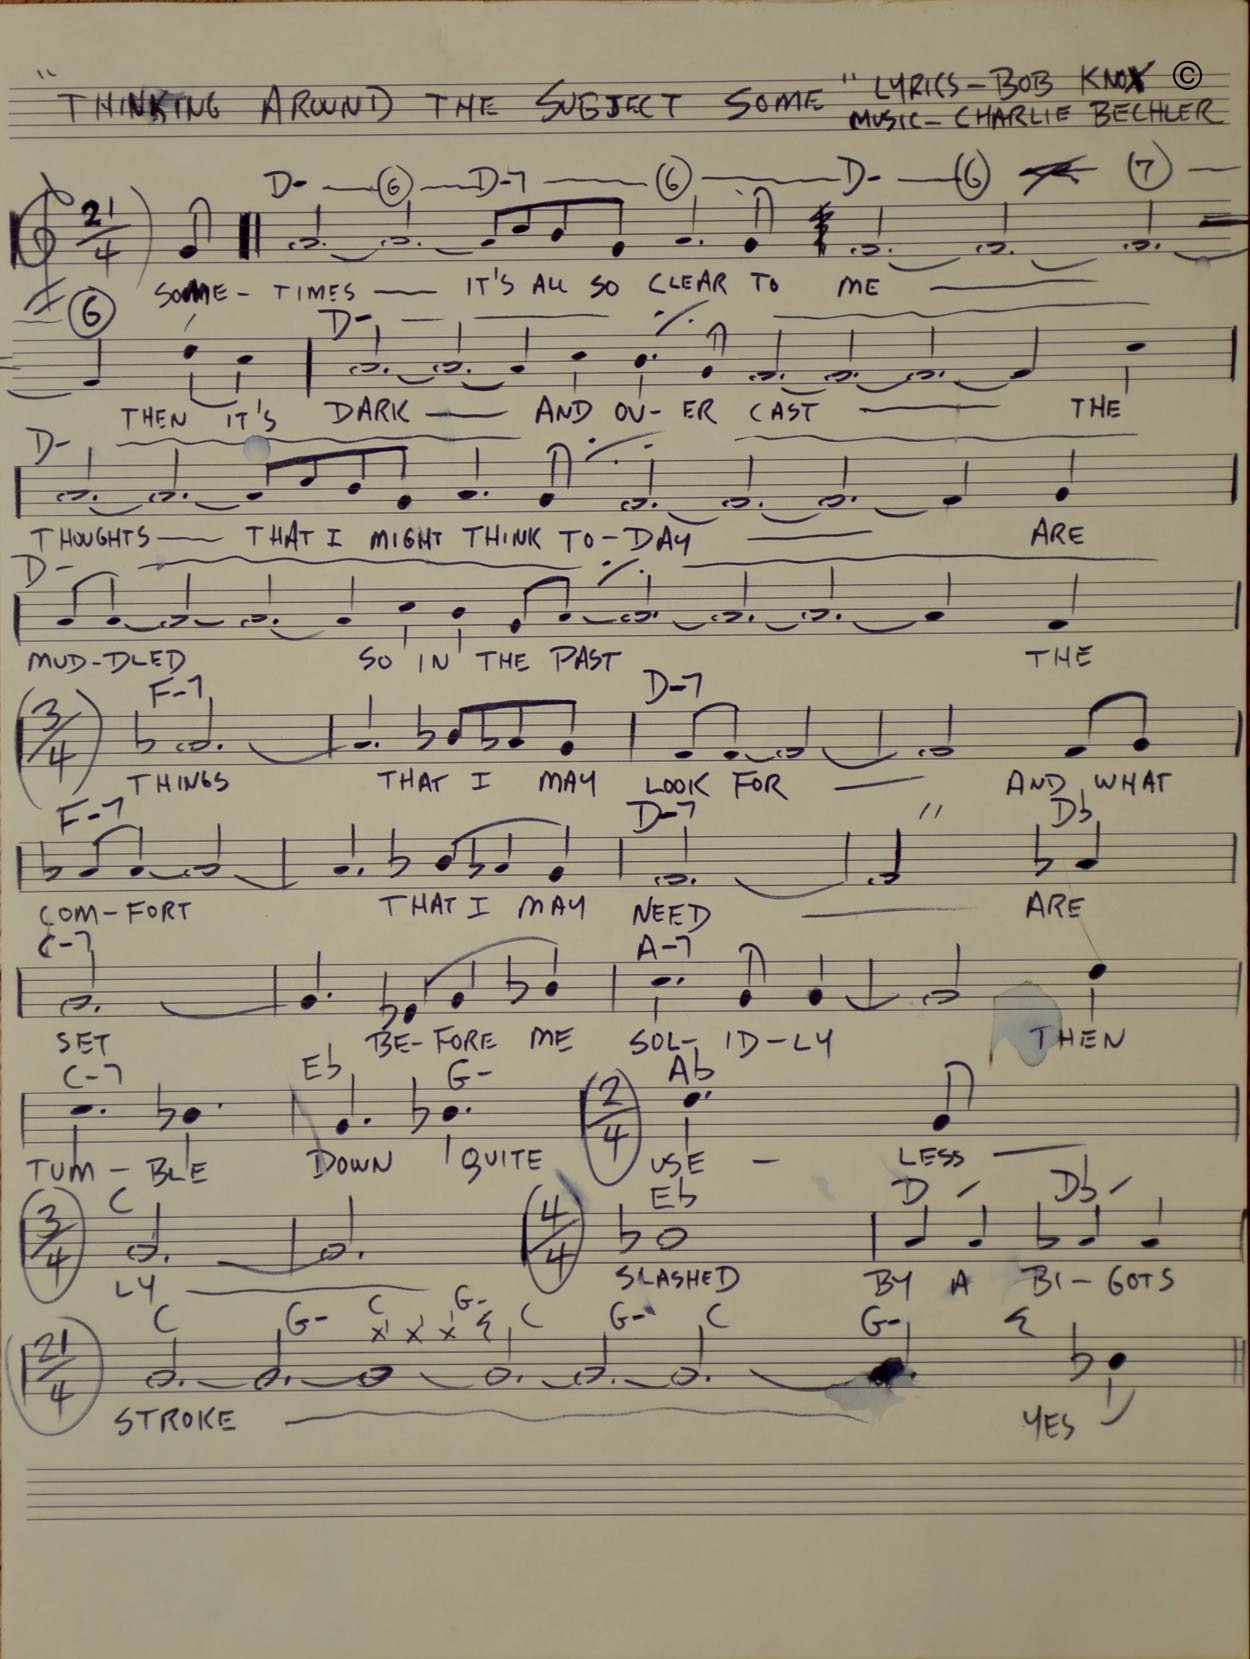 "THINKING AROUND THE SUBJECT SOME" LYRICS-BOB KNOX ©
MUSIC-CHARLIE BECHLER
D- 6 D-7 6 D- 6 7
21/4
SOME-TIMES IT'S ALL SO CLEAR TO ME
6 D-
THEN IT'S DARK AND OV-ER CAST THE
D-
THOUGHTS THAT I MIGHT THINK TO-DAY ARE
D-
MUD-DLED SO IN THE PAST THE
3/4 F-7 D-7
THINGS THAT I MAY LOOK FOR AND WHAT
F-7 D-7 " Db
COM-FORT THAT I MAY NEED ARE
C-7 A-7
SET BE-FORE ME SOL-ID-LY THEN
C-7 Eb G- 2/4 Ab
TUM-BLE DOWN QUITE USE - LESS
3/4 C 4/4 Eb D Db
LY SLASHED BY A BI-GOTS
C G- C G- C G- C G-
21/4
STROKE YES